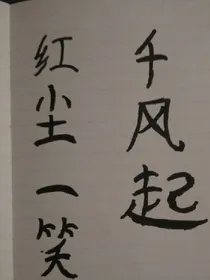 千风起
红尘一笑